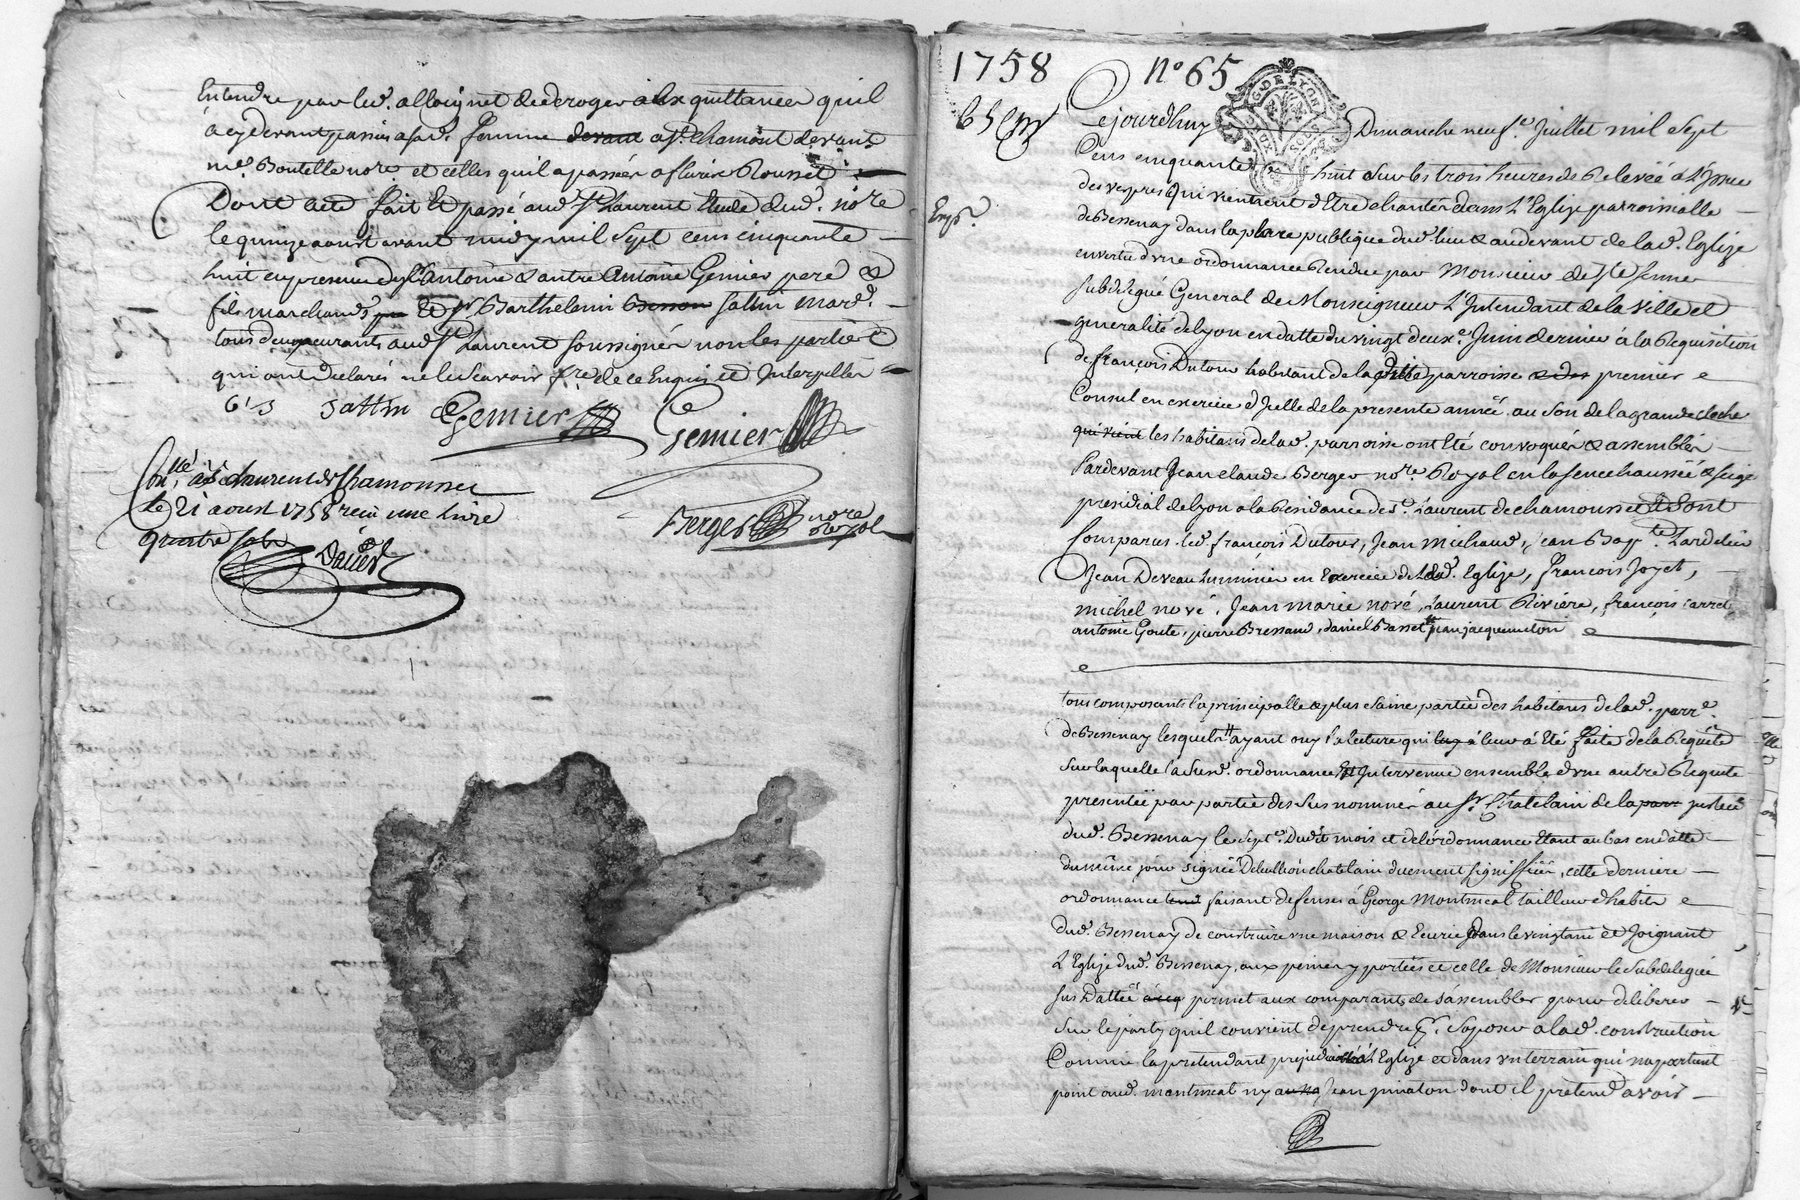 Entendre par led. alloignet de deroger aux quittances quil
à cydevant passées a sad. femme devant a St. chamont devant
me. Boutelle nore. et celles quil a passées a fleurie Rousset
Dont acte fait Et passé aud. St Laurent Etude dud. nore
le quinze aoust avant midy mil Sept cens cinquante
huit en presence de Sr. antoine & autre antoine Gemier pere &
fils marchands Et Sr. Barthelemi Besson sattin mard.
tous demeurants aud. St Laurent soussignés non les parties
qui ont declarés ne le scavoir fre. de ce Enquis et Interpellés
sattin Gemier Gemier
Conllé. à St Laurent de Chamousset
le 21 aoust 1758 reçu une livre
quatre sols
Berger nore Royal
1758 No 65
Cejourdhuy Dimanche neufe. Juillet mil Sept
Cens cinquante huit Sur les trois heures de Relevée à L'issue
des vespres qui viennent d'Etre chantées dans L'Eglise parroissialle
de Bessenay dans la place publique dud. lieu & audevant de lad. Eglize
en vertu d'une ordonnance Rendue par Monsieur de
Subdelegué General de Monseigneur L'Intendant de la ville et
generalité de Lyon en datte du vingt deuxe. Juin dernier à la Requisition
de françois Dutour habitant de la ditte parroisse & des premier
Consul en exercice d'Icelle de la presente année au son de la grande cloche
qui vient les habitans de lad. parroisse ont Eté convoqués & assemblés
Pardevant Jean claude Berger nore. Royal en la senechaussée & siege
presidial de Lyon a la Residance de St. Laurent de chamousset Et Sont
Comparus led. françois Dutour, Jean michaud, Jean Bapte.
Jean Deveau Luminier en Exercice de lad. Eglize, françois Joyet,
michel nové, Jean marie nové, Laurent Riviere, françois Carret
antoine Goute, pierre Bressand, daniel Basset jean jacquemeton
tous composants la principalle & plus saine partie des habitans de lad. parre.
de Bessenay lesquels ayant ouy la lecture qui leur à Eté faite de la Requête
Sur laquelle la susd. ordonnance Est Intervenue ensemble d'une autre Requete
presentée par partie des sus nommés au Sr. Chatelain de la parr justice
dud. Bessenay le Septe. Dudt mois et de l'ordonnance Etant au bas en datte
du même jour signée chatelain duement signiffiée, cette derniere
ordonnance faisant defenses à George Montmeat tailleur d'habits
dud. Bessenay de construire une maison & Ecurie dans le vingtain et Joignant
L'Eglize dud. Bessenay, aux peines y portées et celle de Monsieur le Subdelegué
sus Dattée permet aux comparants de s'assembler pour deliberer
Sur le party quil convient de prendre pr. s'oposer a lad. construction
Comme la pretendant prejudiciable à L'Eglize et dans un terrain qui n'apartient
point aud. montmeat ny Jean pinaton dont il pretend avoir